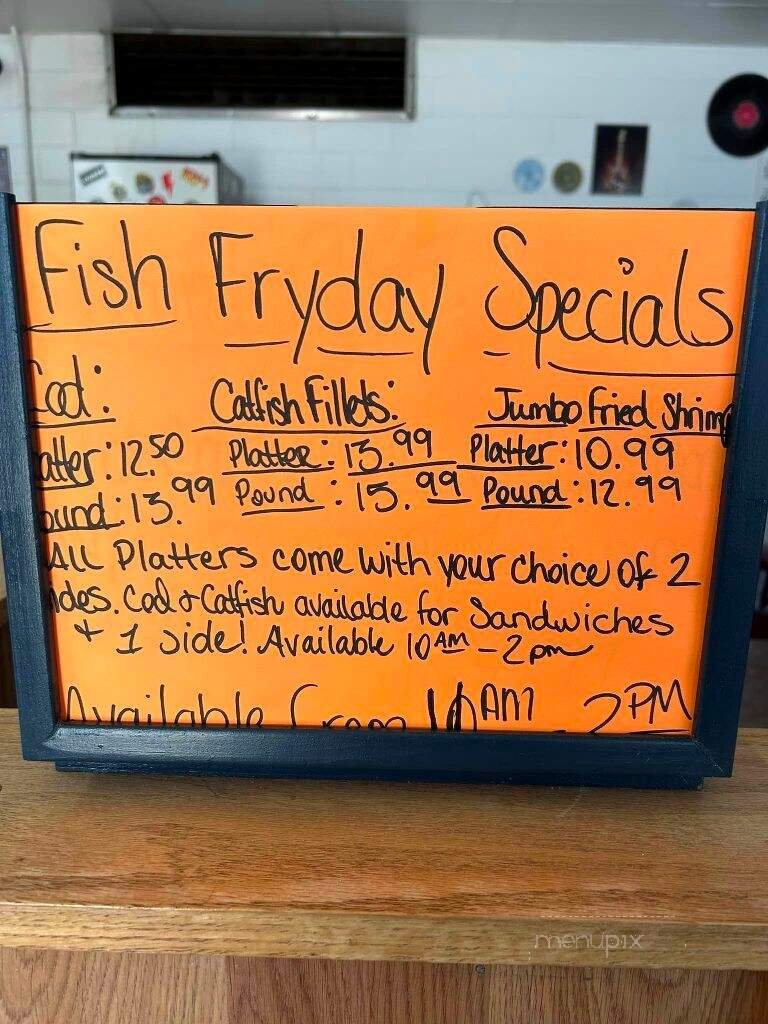 Fish Fryday Specials
Cod: Catfish Fillets: Jumbo Fried Shrimp
atter: 12.50 Platter: 13.99 Platter: 10.99
ound: 13.99 Pound: 15.99 Pound: 12.99
All Platters come with your choice of 2
ides. Cod & Catfish available for Sandwiches
+ 1 side! Available 10AM - 2pm
Available from 10AM - 2PM
menupix